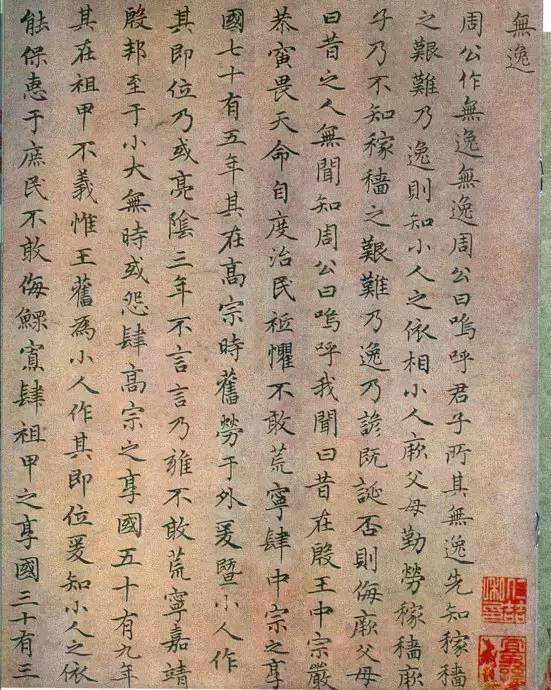 無逸
周公作無逸無逸周公曰嗚呼君子所其無逸先知稼穡
之艱難乃逸則知小人之依相小人厥父母勤勞稼穡厥
子乃不知稼穡之艱難乃逸乃諺既誕否則侮厥父母
曰昔之人無聞知周公曰嗚呼我聞曰昔在殷王中宗嚴
恭寅畏天命自度治民祗懼不敢荒寧肆中宗之享
國七十有五年其在高宗時舊勞于外爰暨小人作
其即位乃或亮陰三年不言言乃雍不敢荒寧嘉靖
殷邦至于小大無時或怨肆高宗之享國五十有九年
其在祖甲不義惟王舊為小人作其即位爰知小人之依
能保惠于庶民不敢侮鰥寡肆祖甲之享國三十有三